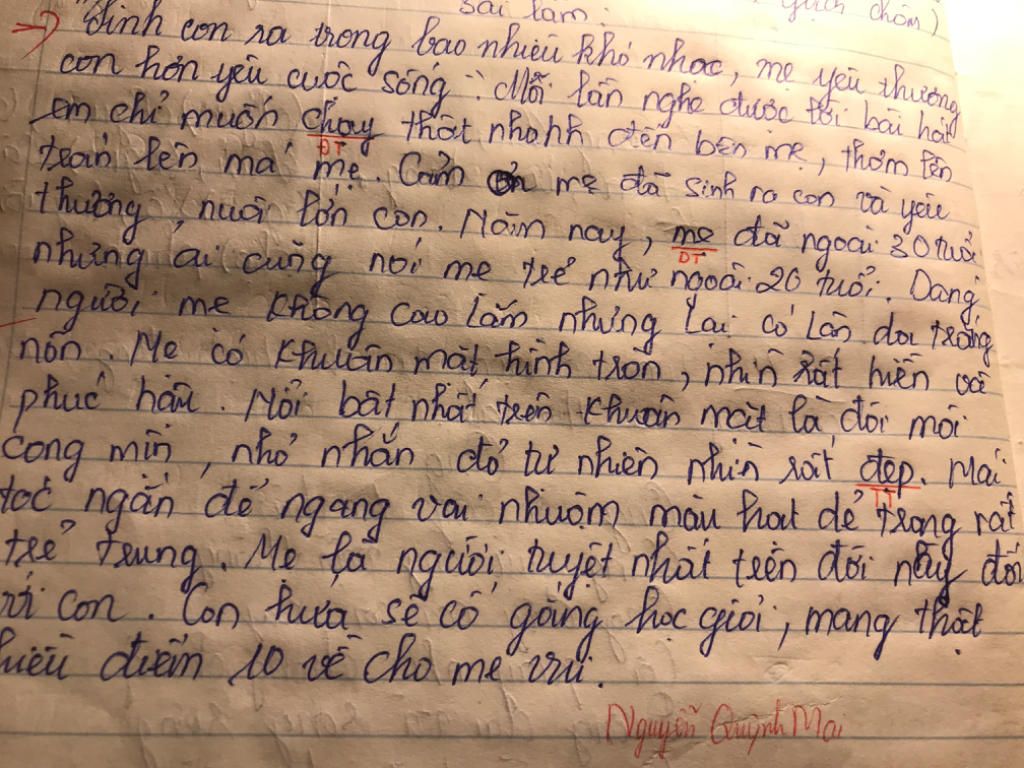 sai lầm. gạch chân)
→ Sinh con ra trong bao nhiêu khó nhọc, mẹ yêu thương
con hơn yêu cuộc sống ". Mỗi lần nghe được lời bài hát
em chỉ muốn chạy thật nhanh đến bên mẹ, thơm lên
ĐT
trán lên má mẹ. Cảm ơn mẹ đã sinh ra con và yêu
thương, nuôi lớn con. Năm nay, mẹ đã ngoài 30 tuổi
DT
nhưng ai cũng nói mẹ trẻ như ngoài 20 tuổi. Dáng
người mẹ không cao lắm nhưng lại có làn da trắng
nõn. Mẹ có khuôn mặt hình tròn, nhìn rất hiền và
phúc hậu. Nổi bật nhất trên khuôn mặt là đôi môi
cong mịn, nhỏ nhắn đỏ tự nhiên nhìn rất đẹp. Mái
TT
tóc ngắn để ngang vai nhuộm màu hạt dẻ trông rất
trẻ trung. Mẹ là người tuyệt nhất trên đời này đối
với con. Con hứa sẽ cố gắng học giỏi, mang thật
nhiều điểm 10 về cho mẹ vui.
Nguyễn Quỳnh Mai